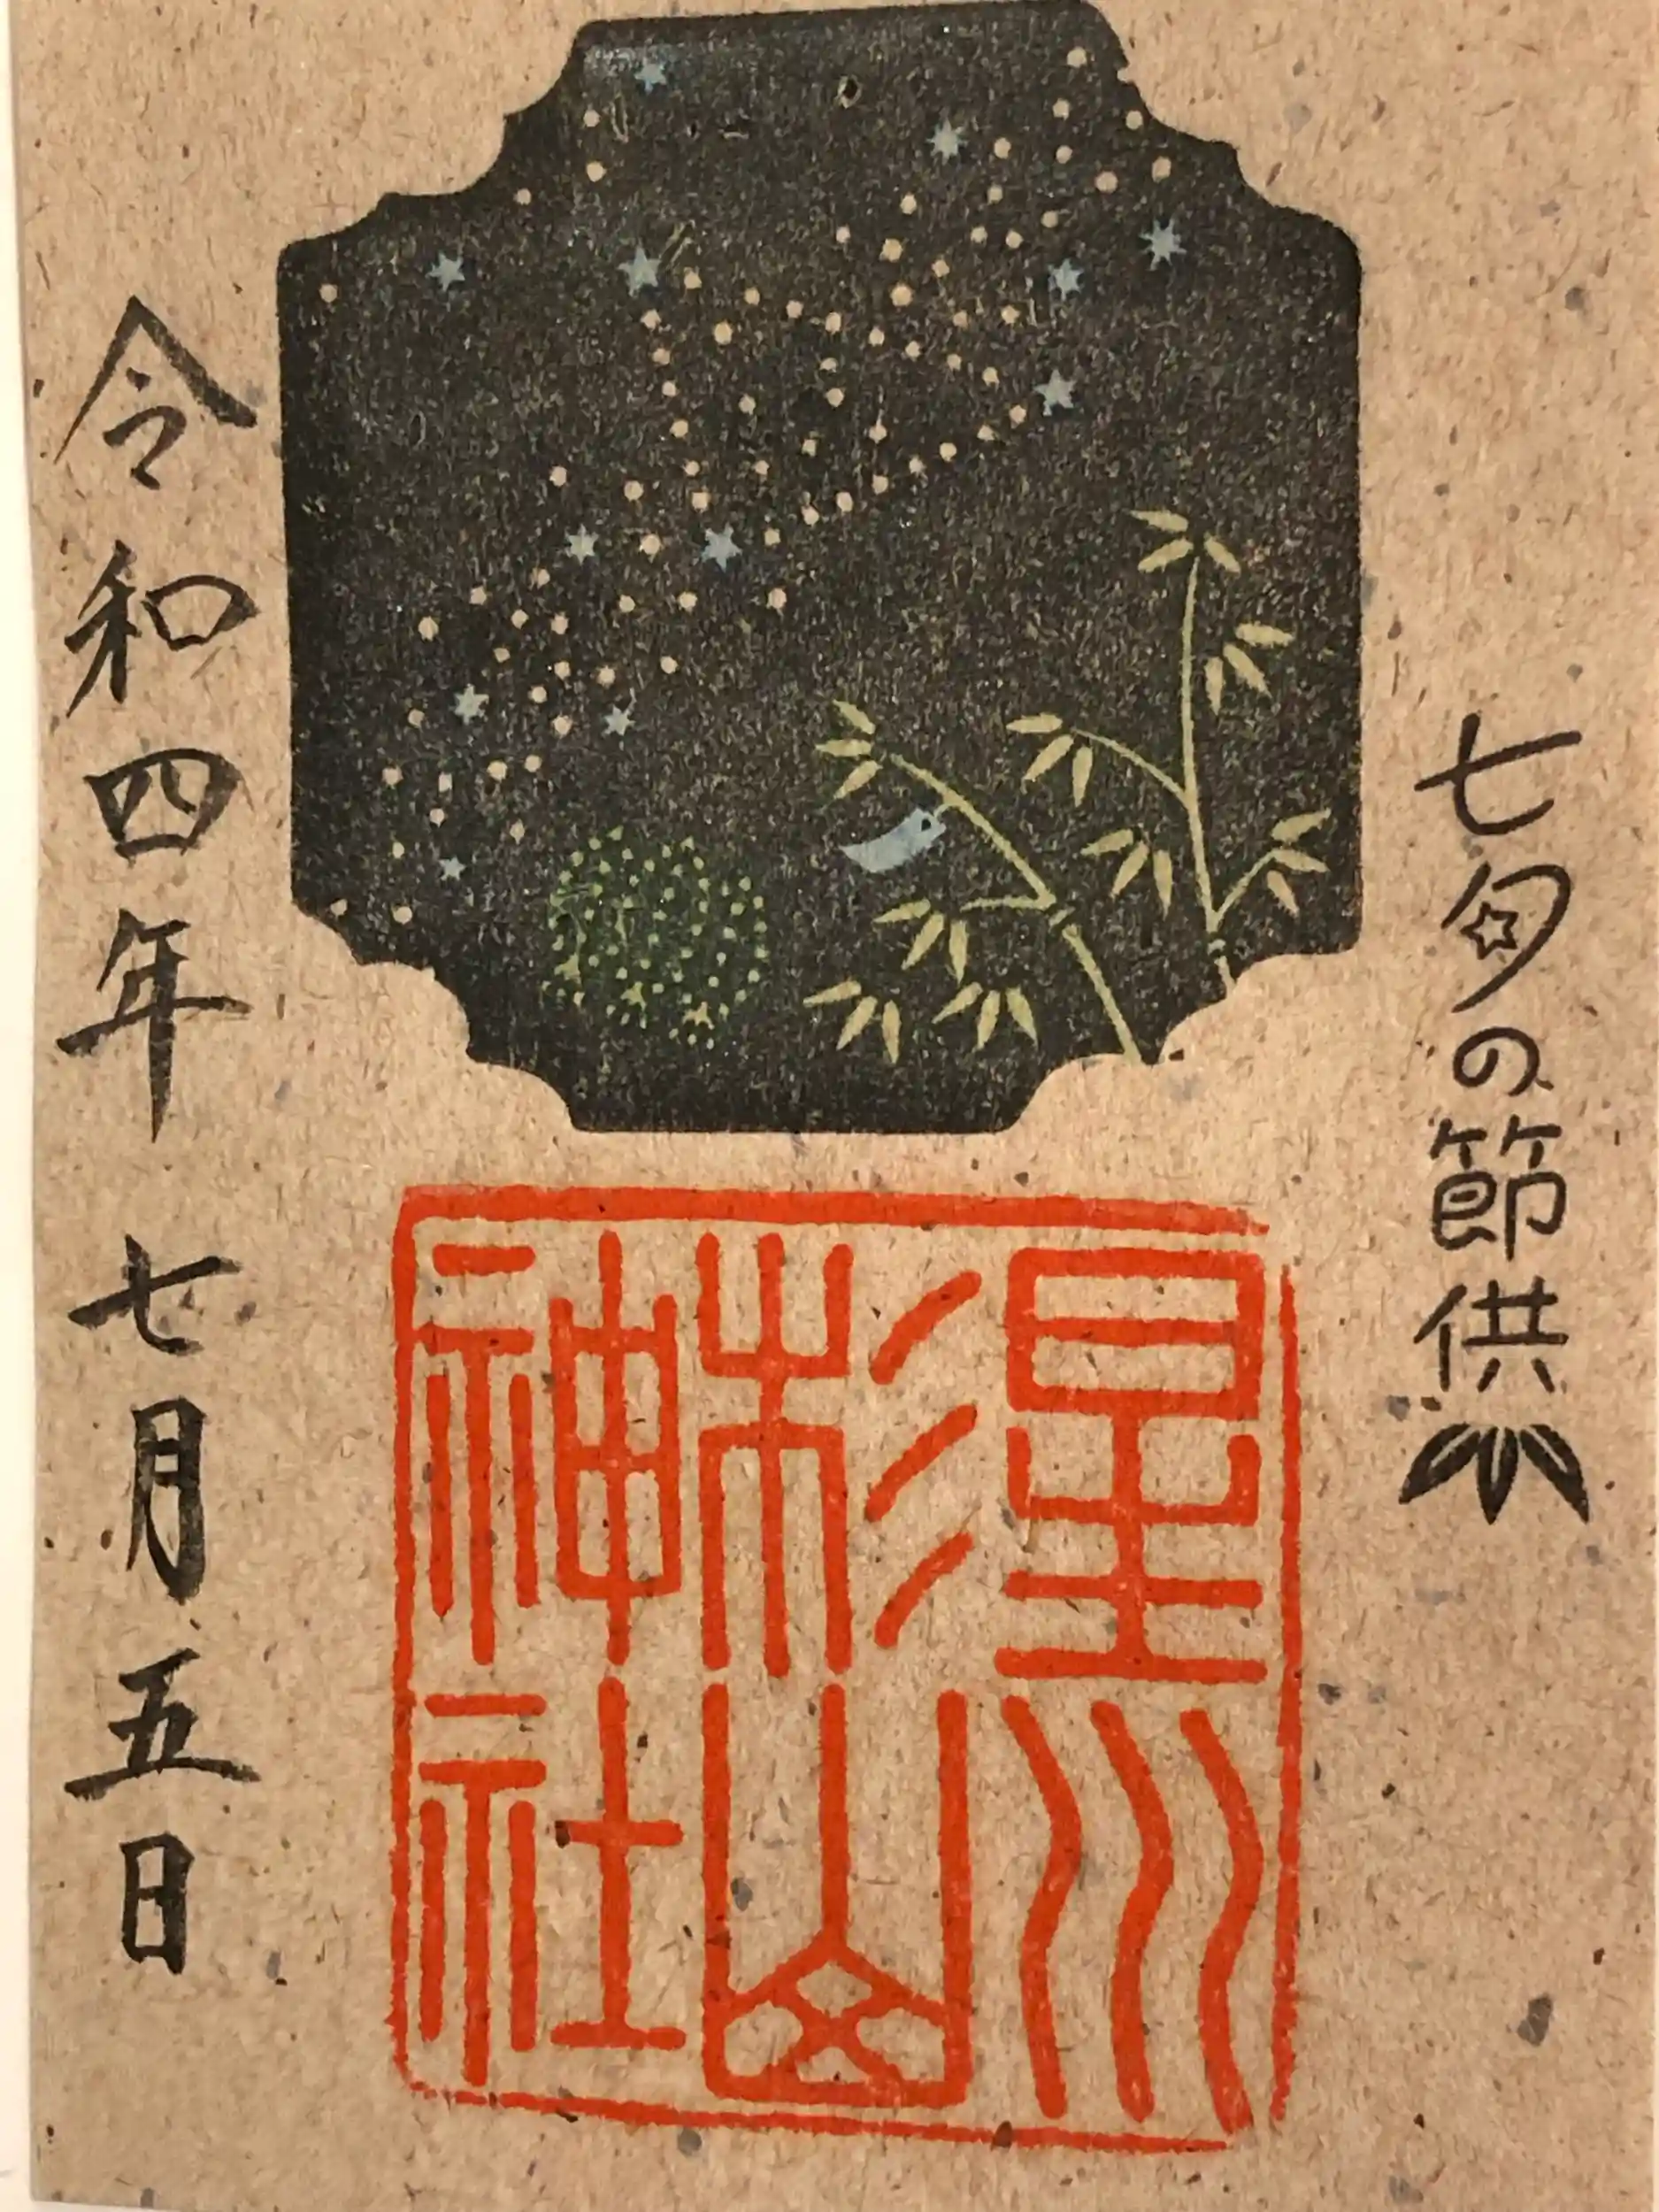 七夕の節供
星川
杉山
神社
令和四年 七月五日